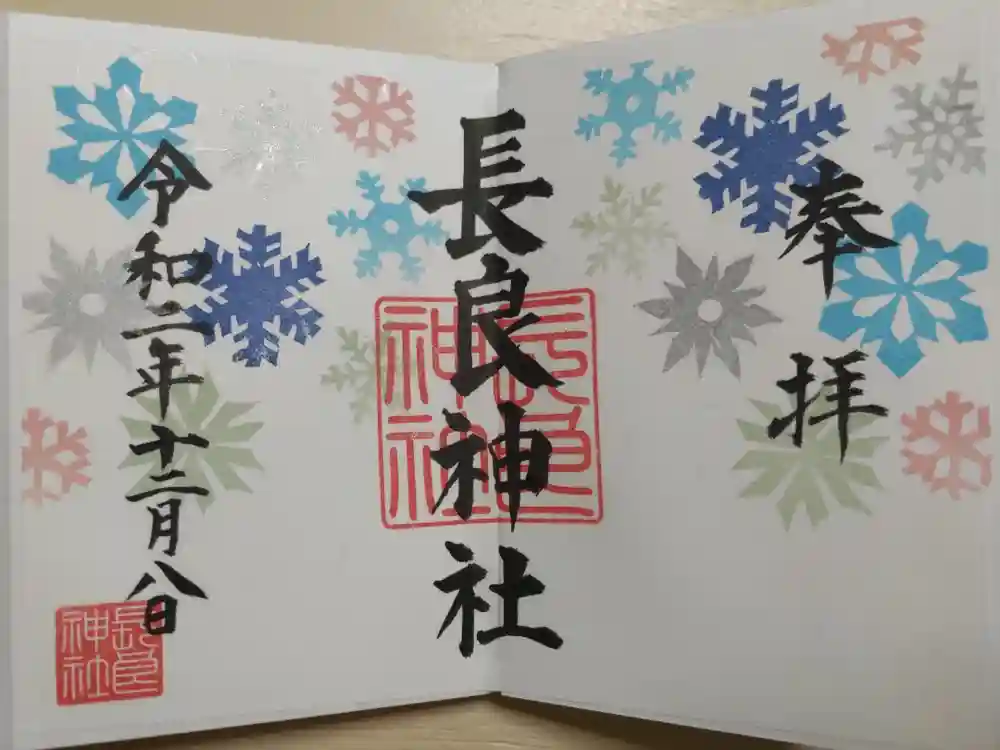 奉拝
長良神社
長良神社
令和二年十二月八日
長良神社